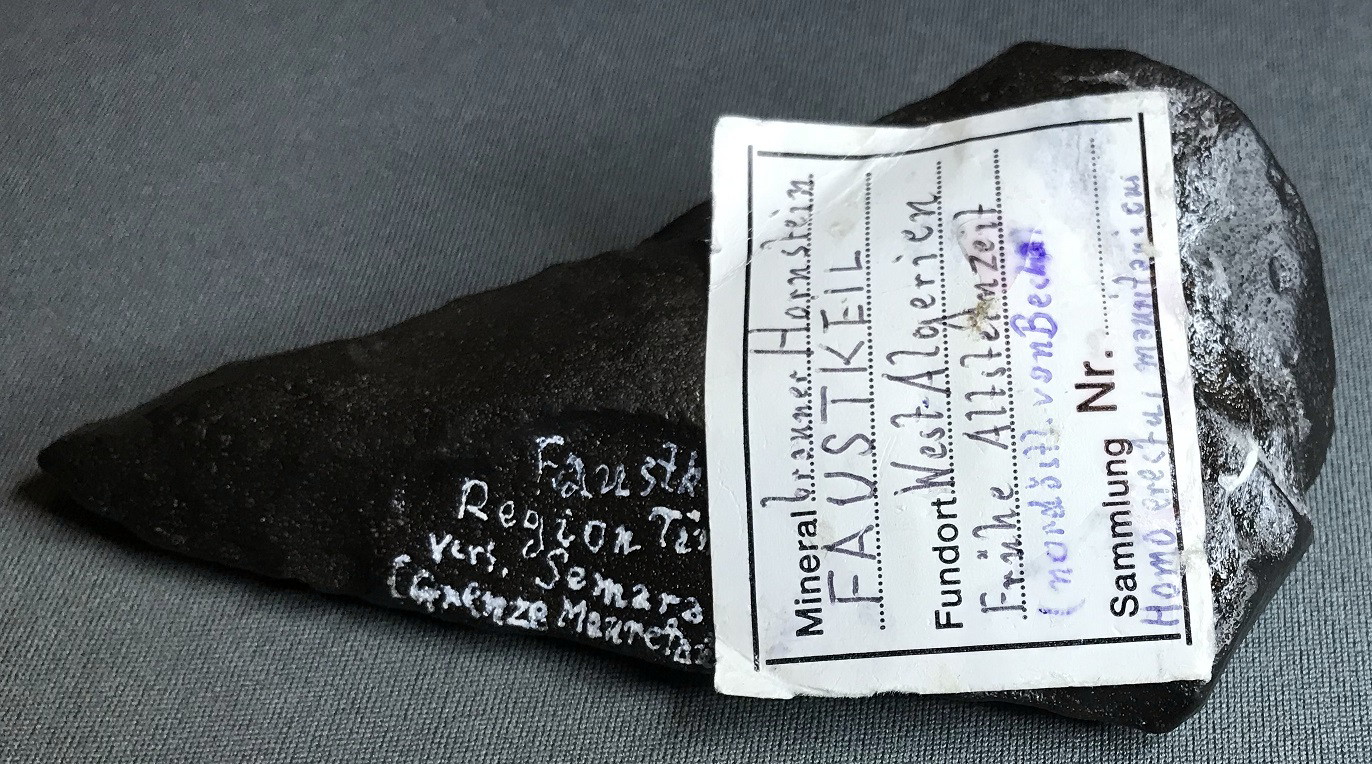 Faustk
Region Tin
vers. Semara
(Grenze Maureta
Mineral brauner Hornstein
FAUSTKEIL
Fundort West-Algerien
Frühe Altsteinzeit
(nordöstl. von Bechar
Sammlung Nr.
Homo erectus mauritanicus